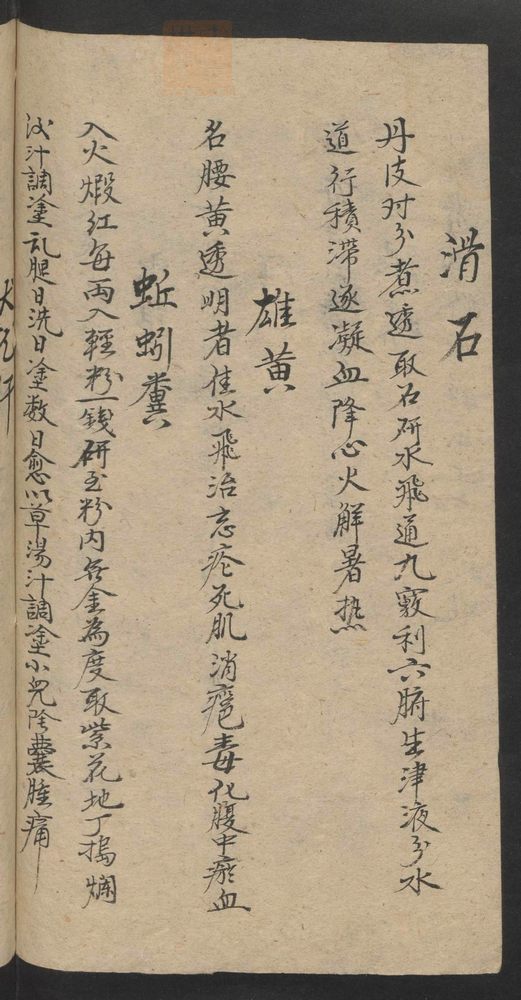 滑石
丹皮对分煮透取石研水飛通九竅利六腑生津液分水
道行積滯逐凝血降心火解暑热
雄黄
名腰黄透明者佳水飛治恶疮死肌消瘡毒化腹中瘀血
蚯蚓糞
入火煅红每両入輕粉一錢研至粉内無金為度取紫花地丁搗爛
汁調塗乱腿日洗日塗数日愈以草湯汁調塗小児陰囊腫痛